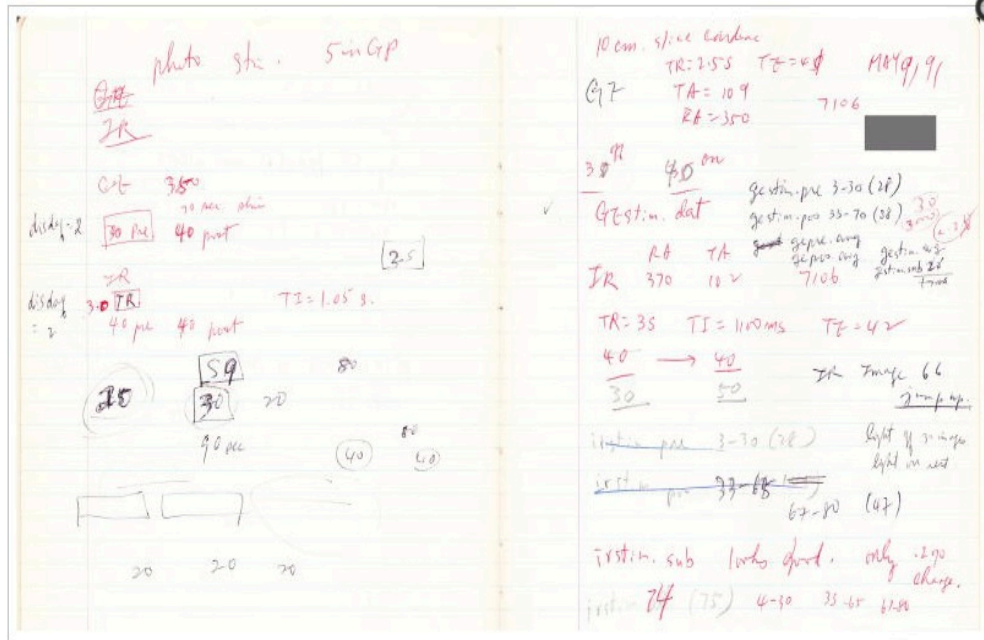 photo stim. 5 in GP
GE
IR
GE 350
90 sec stim
disdaq=2 30 pre 40 post
2.5
IR
disdaq = 2 3.0 IR TI=1.05 s.
40 pre 40 post
59 80
30 20
90 sec
80
40 40
20 20 20
10 cm. slice
TR=2.5s TE=40 MAY 9, 91
GE TA=109
7106
RA=350
30 off 40 on
gestim.pre 3-30 (28)
GEstim.dat gestim.pos 33-70 (38)
30
3000
gepre.avg
gepos.avg
gestim.avg
gestim.sub
RA TA
IR 370 102 7106
TR=3S TI=1100ms TE=42
40 → 40
30 50
IR Image 66
jump up.
irstim pre 3-30 (28)
light off 30 images
light on rest
irstim pos 33-65
67-80 (47)
irstim.sub looks good. only
change.
irstim 74 (75) 4-30 33-65 67-80